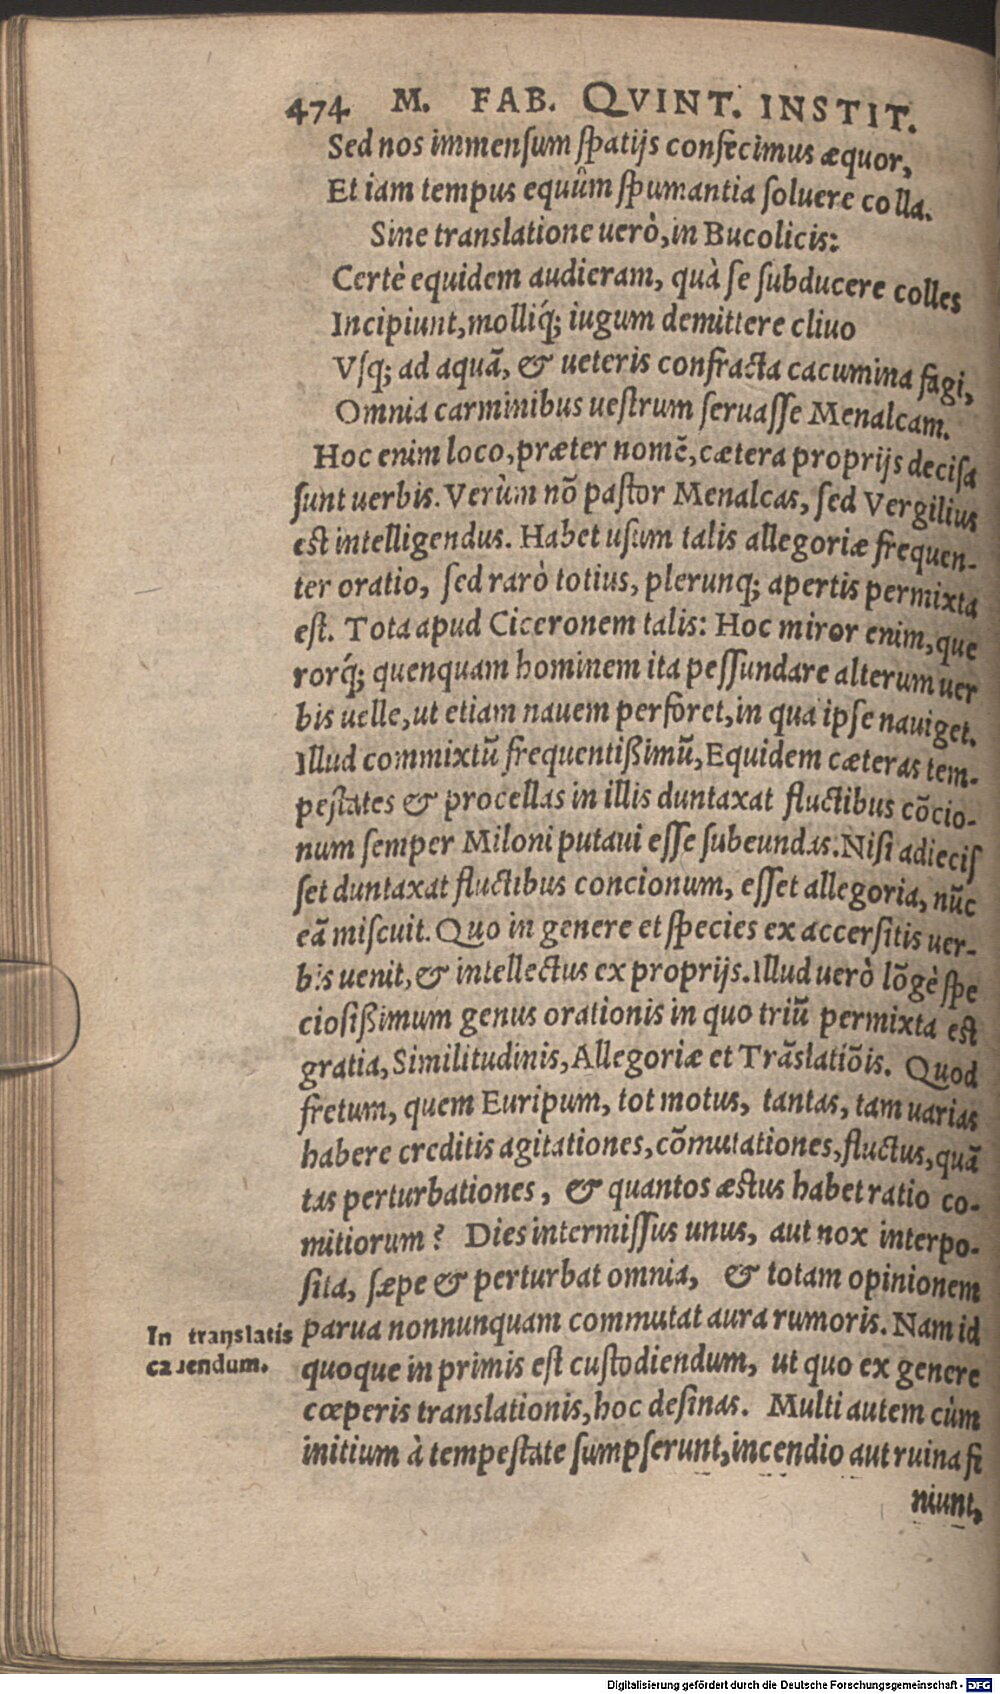 474 M. FAB. QVINT. INSTIT.
Sed nos immenſum ſpatijs confecimus æquor,
Et iam tempus equûm ſpumantia ſoluere colla.
Sine translatione uerò, in Bucolicis:
Certè equidem audieram, quà ſe ſubducere colles
Incipiunt, molliq́; iugum demittere cliuo
Vſq; ad aquã, & ueteris confracta cacumina fagi,
Omnia carminibus ueſtrum ſeruaſſe Menalcam.
Hoc enim loco, præter nomẽ, cætera proprijs deciſa
ſunt uerbis. Verùm nõ paſtor Menalcas, ſed Vergilius
eſt intelligendus. Habet uſum talis allegoriæ frequen-
ter oratio, ſed rarò totius, plerunq; apertis permixta
eſt. Tota apud Ciceronem talis: Hoc miror enim, que
rorq́; quenquam hominem ita peſſundare alterum uer
bis uelle, ut etiam nauem perforet, in qua ipſe nauiget.
Illud commixtũ frequentißimũ, Equidem cæteras tem-
peſtates & procellas in illis duntaxat fluctibus cõcio-
num ſemper Miloni putaui eſſe ſubeundas. Niſi adieciſ
ſet duntaxat fluctibus concionum, eſſet allegoria, nũc
eã miſcuit. Quo in genere et ſpecies ex accerſitis uer-
bis uenit, & intellectus ex proprijs. Illud uerò lõgè ſpe
cioſißimum genus orationis in quo triũ permixta eſt
gratia, Similitudinis, Allegoriæ et Trãslatiõis. Quod
fretum, quem Euripum, tot motus, tantas, tam uarias
habere creditis agitationes, cõmutationes, fluctus, quã
tas perturbationes, & quantos æſtus habet ratio co-
mitiorum? Dies intermiſſus unus, aut nox interpo-
ſita, ſæpe & perturbat omnia, & totam opinionem
parua nonnunquam commutat aura rumoris. Nam id
quoque in primis eſt cuſtodiendum, ut quo ex genere
cœperis translationis, hoc deſinas. Multi autem cùm
initium à tempeſtate ſumpſerunt, incendio aut ruina fi
niunt,
In translatis
cauendum.
Digitalisierung gefördert durch die Deutsche Forschungsgemeinschaft - DFG